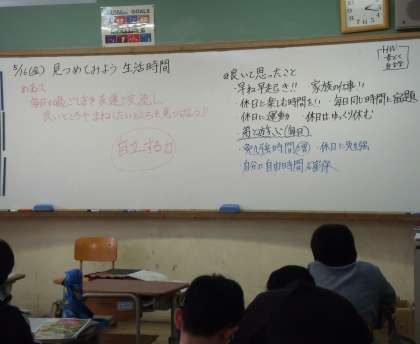 GOALS
5/16(金) 見つめてみよう 生活時間
めあて
毎日の過ごし方を友達と交流し、
良いところやまねしたいところを見つけよう
自立する力
◎良いと思ったこと
・早ね早起き!! 家族の仕事!!
・休日に楽しむ時間を!! ・毎日同じ時間に宿題
・休日に運動 ・休日はゆっくり休む
・弟と遊ぶ(毎日)
・勉強時間 ・休日に勉強
・自分の自由時間を確保
HW
自主学